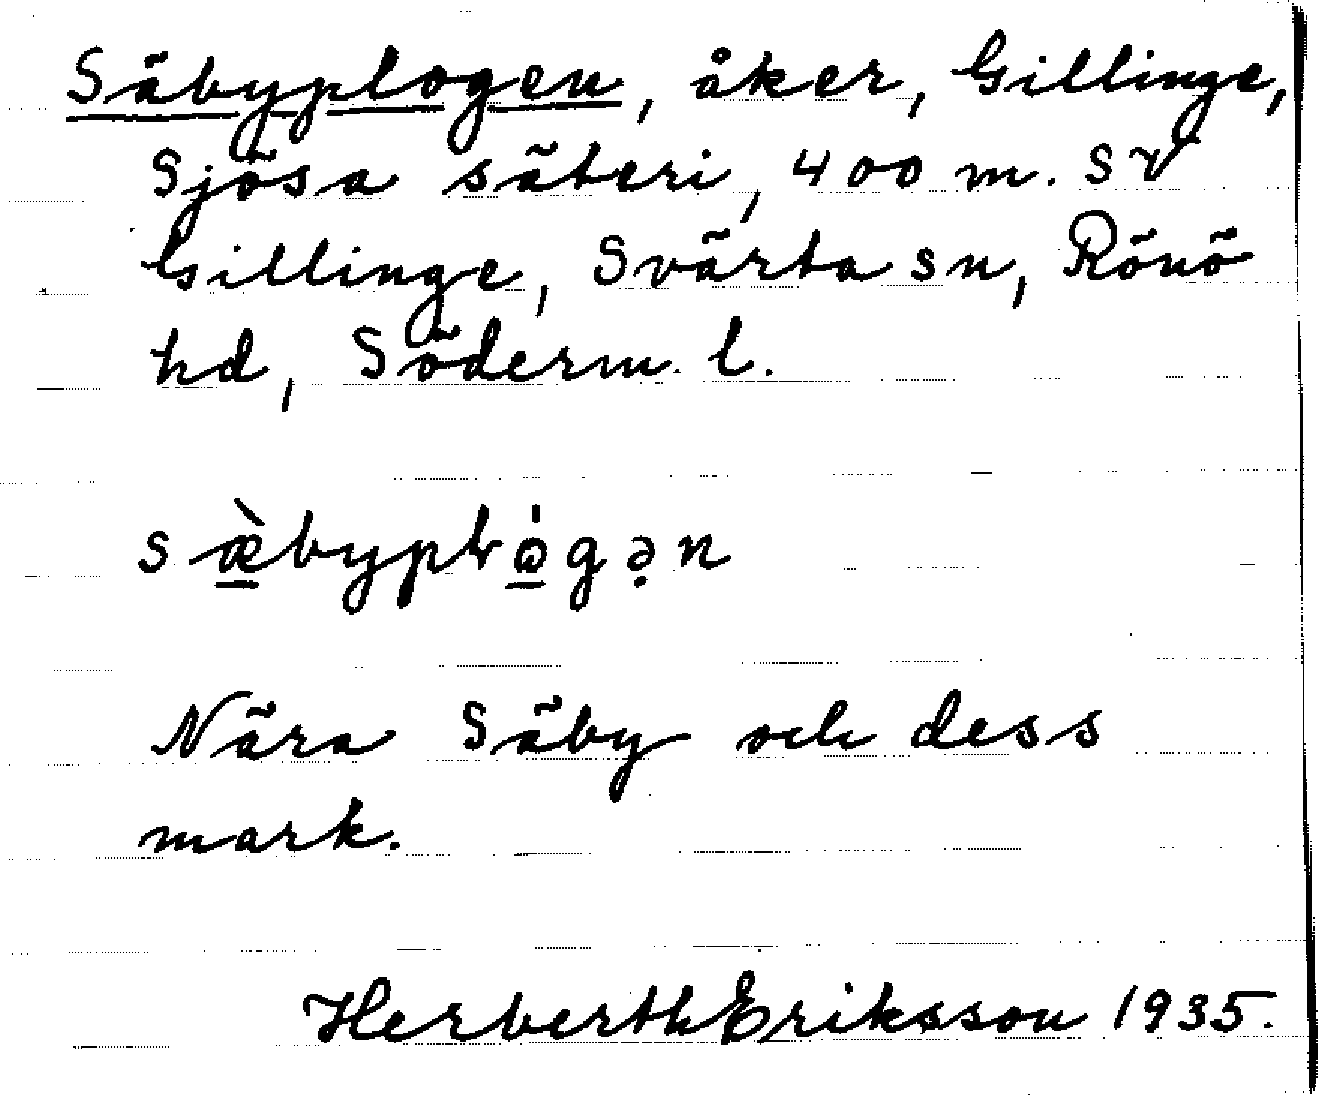 Säbyplogen, åker, Gillinge,
Sjösa säteri, 400 m. SV
Gillinge, Svärta sn, Rönö
hd, Söderm. l.
sæ̠̀byplo̠̍gə̣n
Nära Säby och dess
mark.
Herberth Eriksson 1935.